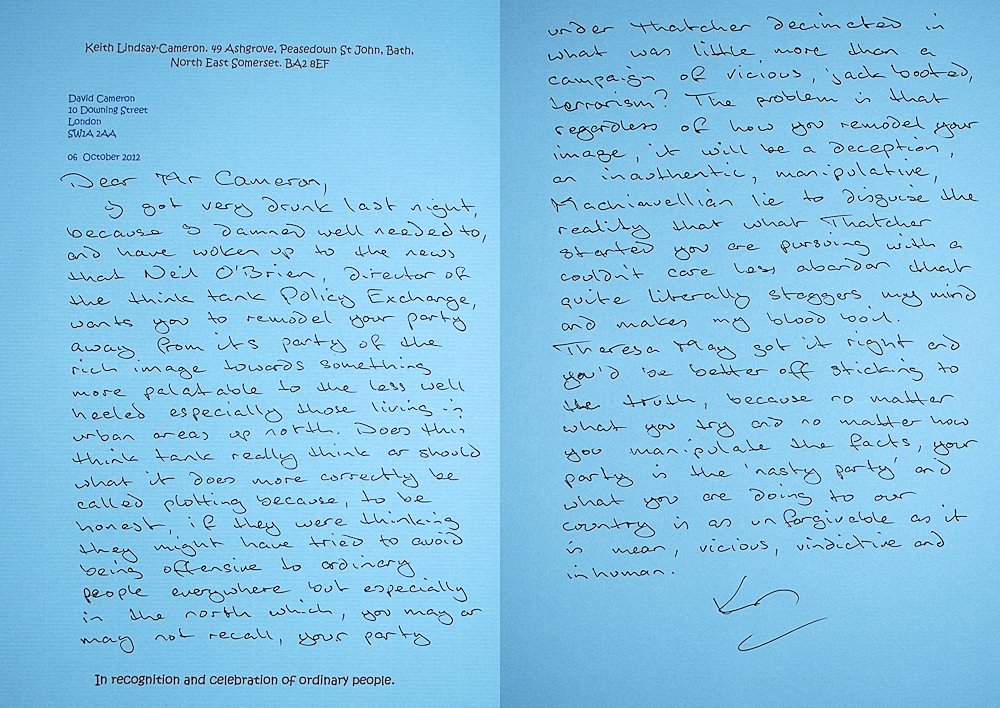 Keith Lindsay-Cameron. 49 Ashgrove, Peasedown St John, Bath,
North East Somerset. BA2 8EF
David Cameron
10 Downing Street
London
SW1A 2AA
06 October 2012
Dear Mr Cameron,
I got very drunk last night,
because I damned well needed to,
and have woken up to the news
that Neil O'Brien, director of
the think tank Policy Exchange,
wants you to remodel your party
away from its party of the
rich image towards something
more palatable to the less well
heeled especially those living in
urban areas up north. Does this
think tank really think or should
what it does more correctly be
called plotting because, to be
honest, if they were thinking
they might have tried to avoid
being offensive to ordinary
people everywhere but especially
in the north which, you may or
may not recall, your party
In recognition and celebration of ordinary people.
under Thatcher decimated in
what was little more than a
campaign of vicious, jack booted,
terrorism? The problem is that
regardless of how you remodel your
image, it will be a deception,
an inauthentic, manipulative,
Machiavellian lie to disguise the
reality that what Thatcher
started you are pursuing with a
couldn't care less abandon that
quite literally staggers my mind
and makes my blood boil.
Theresa May got it right and
you'd be better off sticking to
the truth, because no matter
what you try and no matter how
you manipulate the facts, your
party is the 'nasty party' and
what you are doing to our
country is as unforgivable as it
is mean, vicious, vindictive and
inhuman.